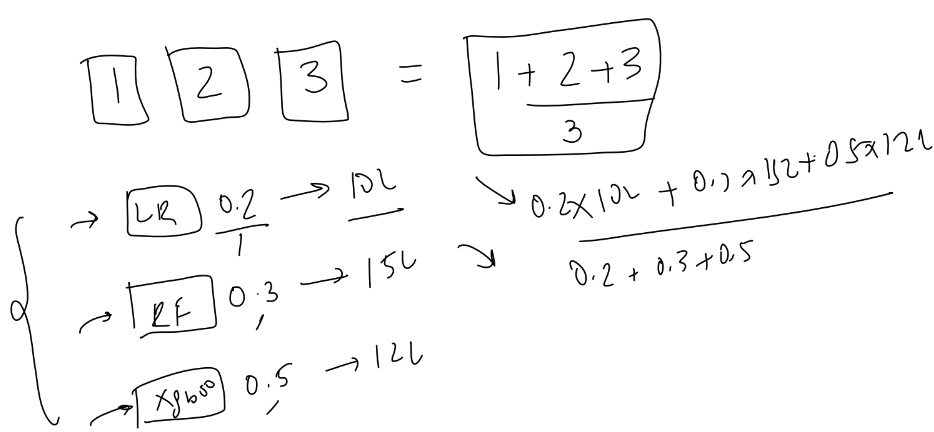 1 2 3 = 1 + 2 + 3
3
LR 0.2 → 10L
1
RF 0.3 → 15L
Xgboo 0.5 → 12L
0.2×10L + 0.3×15L + 0.5×12L
0.2 + 0.3 + 0.5